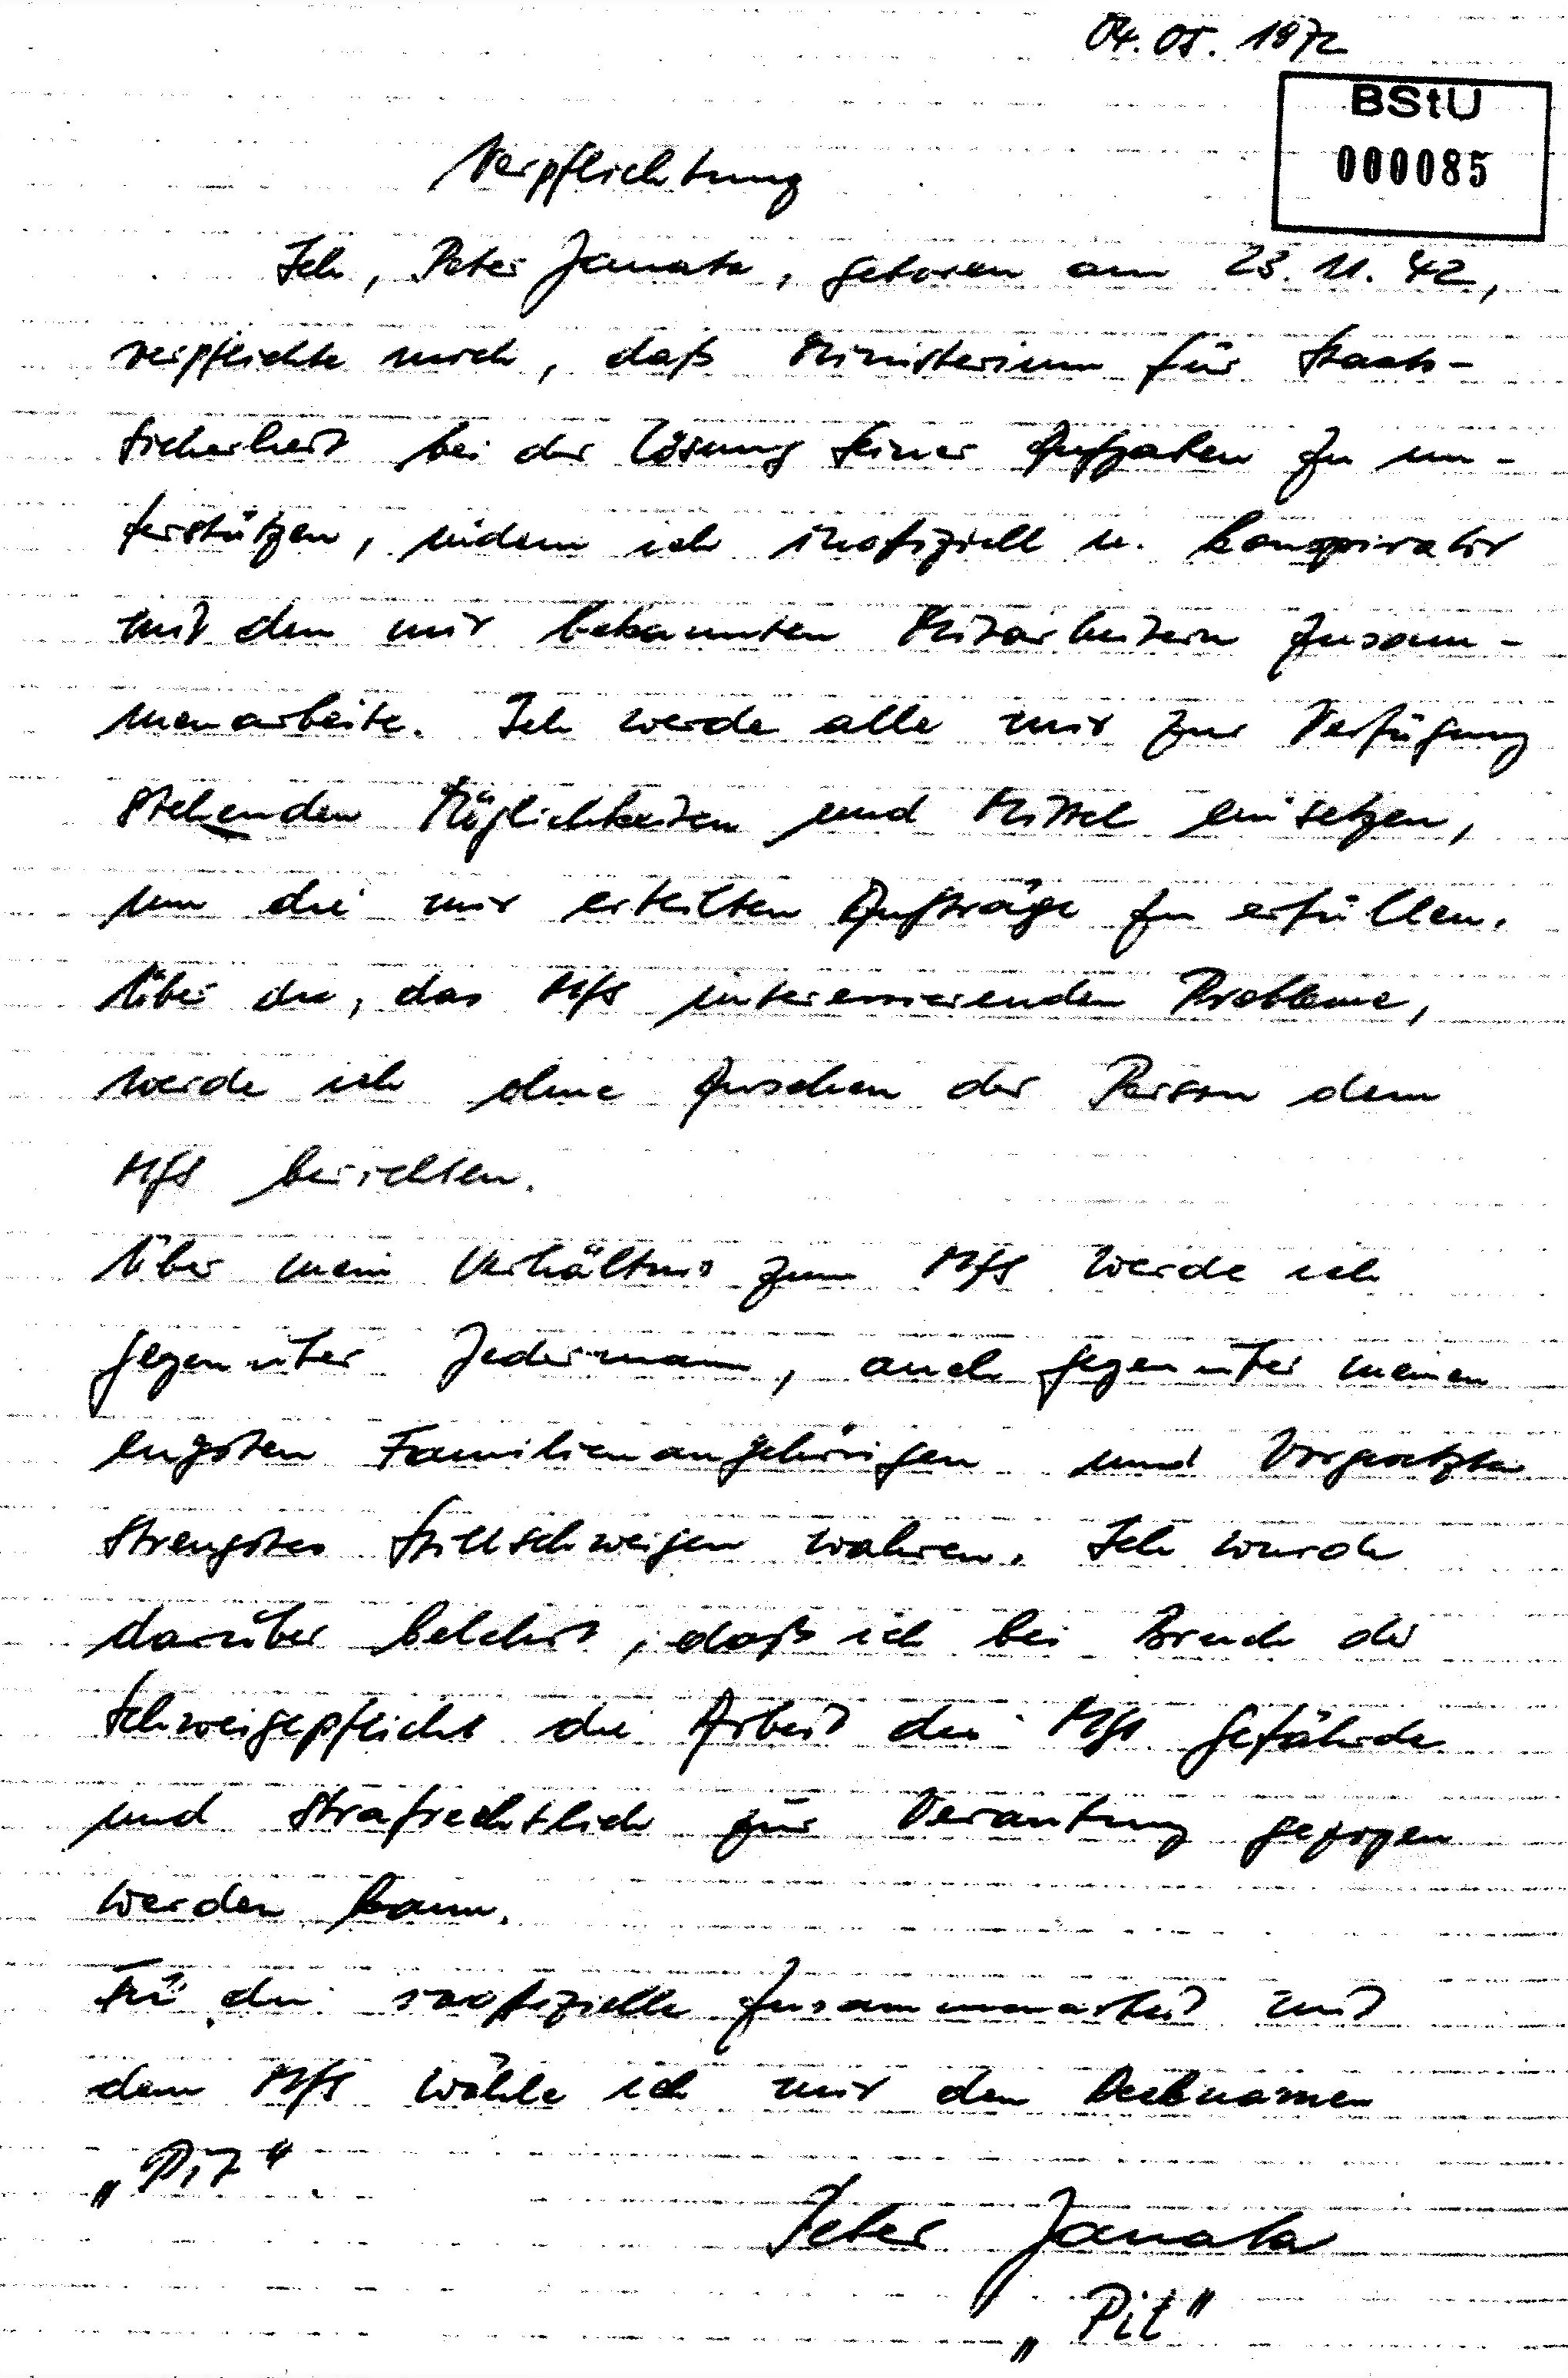 04.05.1972
BStU
000085
Verpflichtung
Ich, Peter Janata, geboren am 23.11.42,
verpflichte mich, daß Ministerium für Staats-
sicherheit bei der Lösung seiner Aufgaben zu un-
terstützen, indem ich inofiziell u. konspirativ
mit den mir bekannten Mitarbeitern zusam-
menarbeite. Ich werde alle mir zur Verfügung
stehenden Möglichkeiten und Mittel einsetzen,
um die mir erteilten Aufträge zu erfüllen.
Über die, das MfS interessierenden Probleme,
werde ich ohne Ansehen der Person dem
MfS berichten.
Über mein Verhältnis zum MfS werde ich
gegenüber Jedermann, auch gegenüber meinen
engsten Familienangehörigen und Vorgesetzten
strengstes Stillschweigen wahren. Ich wurde
darüber belehrt, daß ich bei Bruch der
Schweigepflicht die Arbeit des MfS gefährde
und strafrechtlich zur Verantung gezogen
werden kann.
Für die inoffizielle Zusammenarbeit mit
dem MfS wähle ich mir den Decknamen
„Pit"
Peter Janata
„Pit"